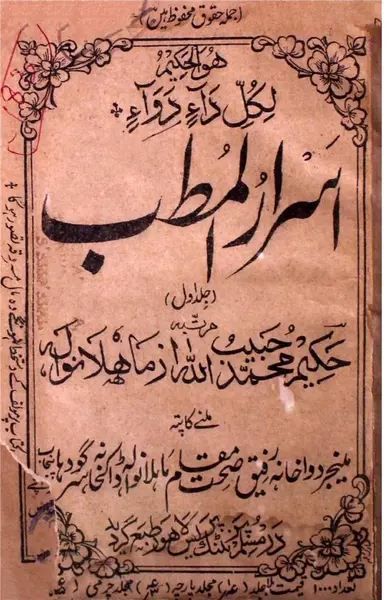 (جملہ حقوق محفوظ ہیں)
ھو الحکیم
لِکُلِّ دَآءٍ دَوَآءٌ
اسرار المطب
(جلد اول)
مرتبہ
حکیم محمد حبیب اللہ از ماھلانوالہ
ملنے کا پتہ
مینیجر دواخانہ رفیق صحت مقام ماہلانوالہ ڈاکخانہ سرگودہا پنجاب
در مسلم پرنٹنگ پریس لاہور طبع گردید
تعداد ۱۰۰۰ قیمت بلا جلد مجلد پارچہ مجلد چرمی